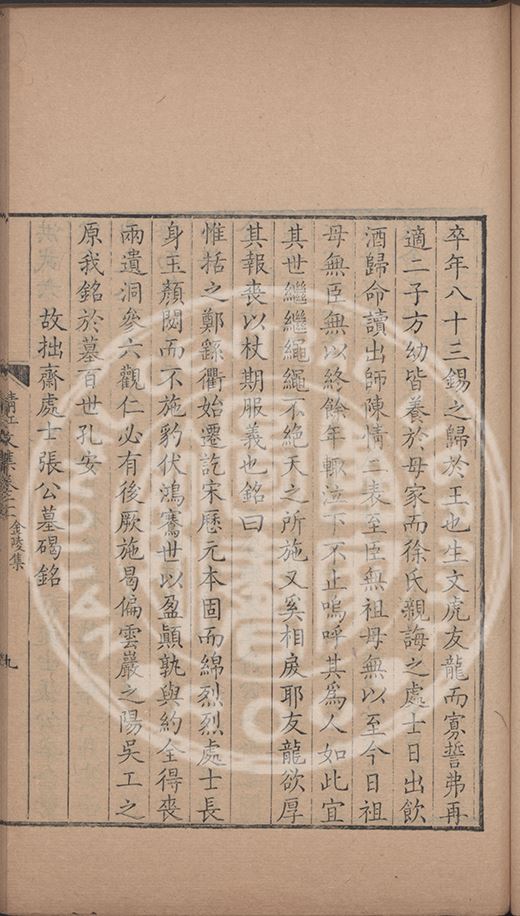 卒年八十三錫之歸於王也生文虎友龍而寡誓弗再
適二子方幼皆養於母家而徐氏親誨之處士日出飲
酒歸命讀出師陳情二表至臣無祖母無以至今日祖
母無臣無以終餘年輒泣下不止嗚呼其爲人如此宜
其世繼繼繩繩不絶天之所施又奚相戾耶友龍欲厚
其報喪以杖期服義也銘曰
惟括之鄭繇衢始遷訖宋歷元本固而綿烈烈處士長
身玉顏閟而不施豹伏鴻騫世以盈顛孰與約全得喪
兩遺洞參六觀仁必有後厥施曷偏雲巖之陽吳工之
原我銘於墓百世孔安
故拙齋處士張公墓碣銘
清江文集卷之 金陵集
九